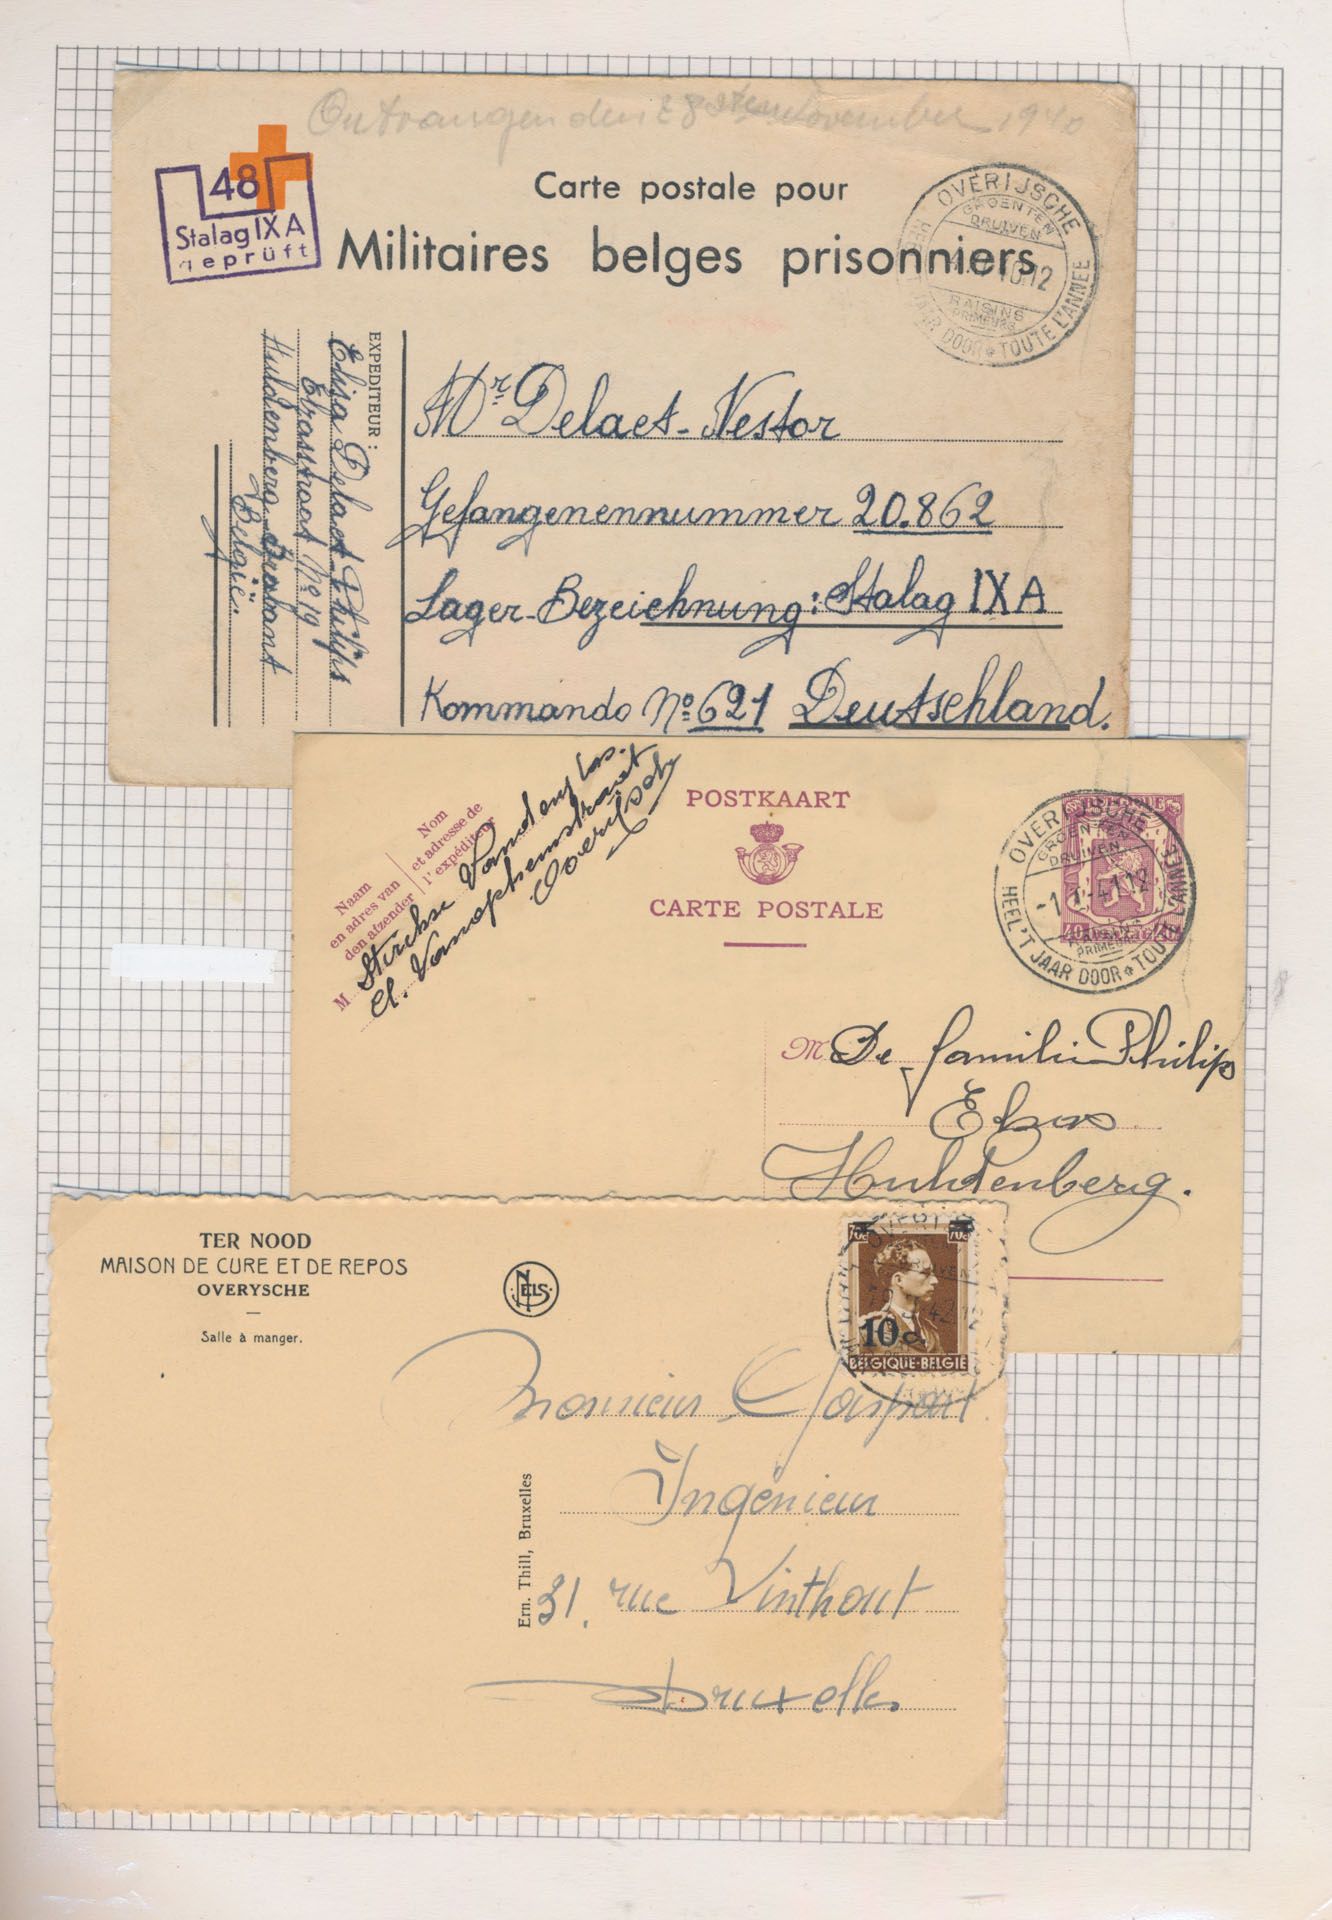 Ontvangen den 28sten November 1940
48
Stalag IX A
geprüft
Carte postale pour
Militaires belges prisonniers
OVERIJSCHE
GROENTEN
DRUIVEN
10.12
RAISINS
PRIMEURS
JAAR DOOR * TOUTE L'ANNÉE
EXPEDITEUR :
Elisa Delaet-Philips
Elzasstraat No 19
Huldenberg-Brabant
België.
Mr. Delaet-Nestor
Gefangenennummer 20.862
Lager-Bezeichnung: Stalag IX A
Kommando No 621 Deutschland.
POSTKAART
CARTE POSTALE
Naam
en adres van
den afzender
Nom
et adresse de
l'expéditeur
M
OVERIJSCHE
GROENTEN
DRUIVEN
-1.1.41.12
PRIMEURS
HEEL 'T JAAR DOOR * TOUTE L'ANNÉE
M De familie Philips
Huldenberg.
TER NOOD
MAISON DE CURE ET DE REPOS
OVERYSCHE
Salle à manger.
NELS
70c 70c
10c.
BELGIQUE-BELGIË
Monsieur Gaspart
Ingénieur
31, rue Vinthout
Bruxelles
Ern. Thill, Bruxelles